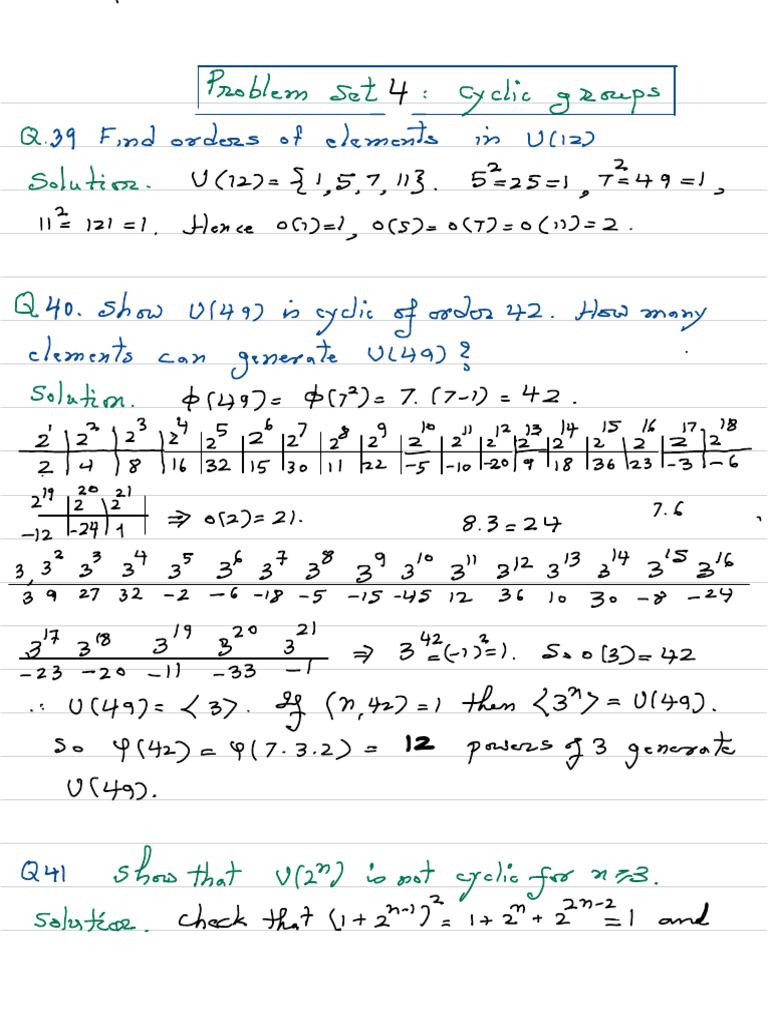 Problem Set 4 : cyclic groups
Q.39 Find orders of elements in U(12)
Solution. U(12) = {1, 5, 7, 11}. 5² = 25 = 1, 7² = 49 = 1,
11² = 121 = 1. Hence o(1) = 1, o(5) = o(7) = o(11) = 2.
Q 40. Show U(49) is cyclic of order 42. How many
elements can generate U(49)?
Solution. ϕ(49) = ϕ(7²) = 7.(7-1) = 42.
2¹ | 2² | 2³ | 2⁴ | 2⁵ | 2⁶ | 2⁷ | 2⁸ | 2⁹ | 2¹⁰ | 2¹¹ | 2¹² | 2¹³ | 2¹⁴ | 2¹⁵ | 2¹⁶ | 2¹⁷ | 2¹⁸
2 | 4 | 8 | 16 | 32 | 15 | 30 | 11 | 22 | -5 | -10 | -20 | 9 | 18 | 36 | 23 | -3 | -6
2¹⁹ | 2²⁰ | 2²¹
-12 | -24 | 1 ⇒ o(2) = 21. 8.3 = 24 7.6
3, 3² 3³ 3⁴ 3⁵ 3⁶ 3⁷ 3⁸ 3⁹ 3¹⁰ 3¹¹ 3¹² 3¹³ 3¹⁴ 3¹⁵ 3¹⁶
3 9 27 32 -2 -6 -18 -5 -15 -45 12 36 10 30 -8 -24
3¹⁷ 3¹⁸ 3¹⁹ 3²⁰ 3²¹ ⇒ 3⁴² = (-1)² = 1. So o(3) = 42
-23 -20 -11 -33 -1
∴ U(49) = <3>. If (n, 42) = 1 then <3ⁿ> = U(49).
So φ(42) = φ(7.3.2) = 12 powers of 3 generate
U(49).
Q41 Show that U(2ⁿ) is not cyclic for n ≥ 3.
Solution. Check that (1 + 2ⁿ⁻¹)² = 1 + 2ⁿ + 2²ⁿ⁻² = 1 and